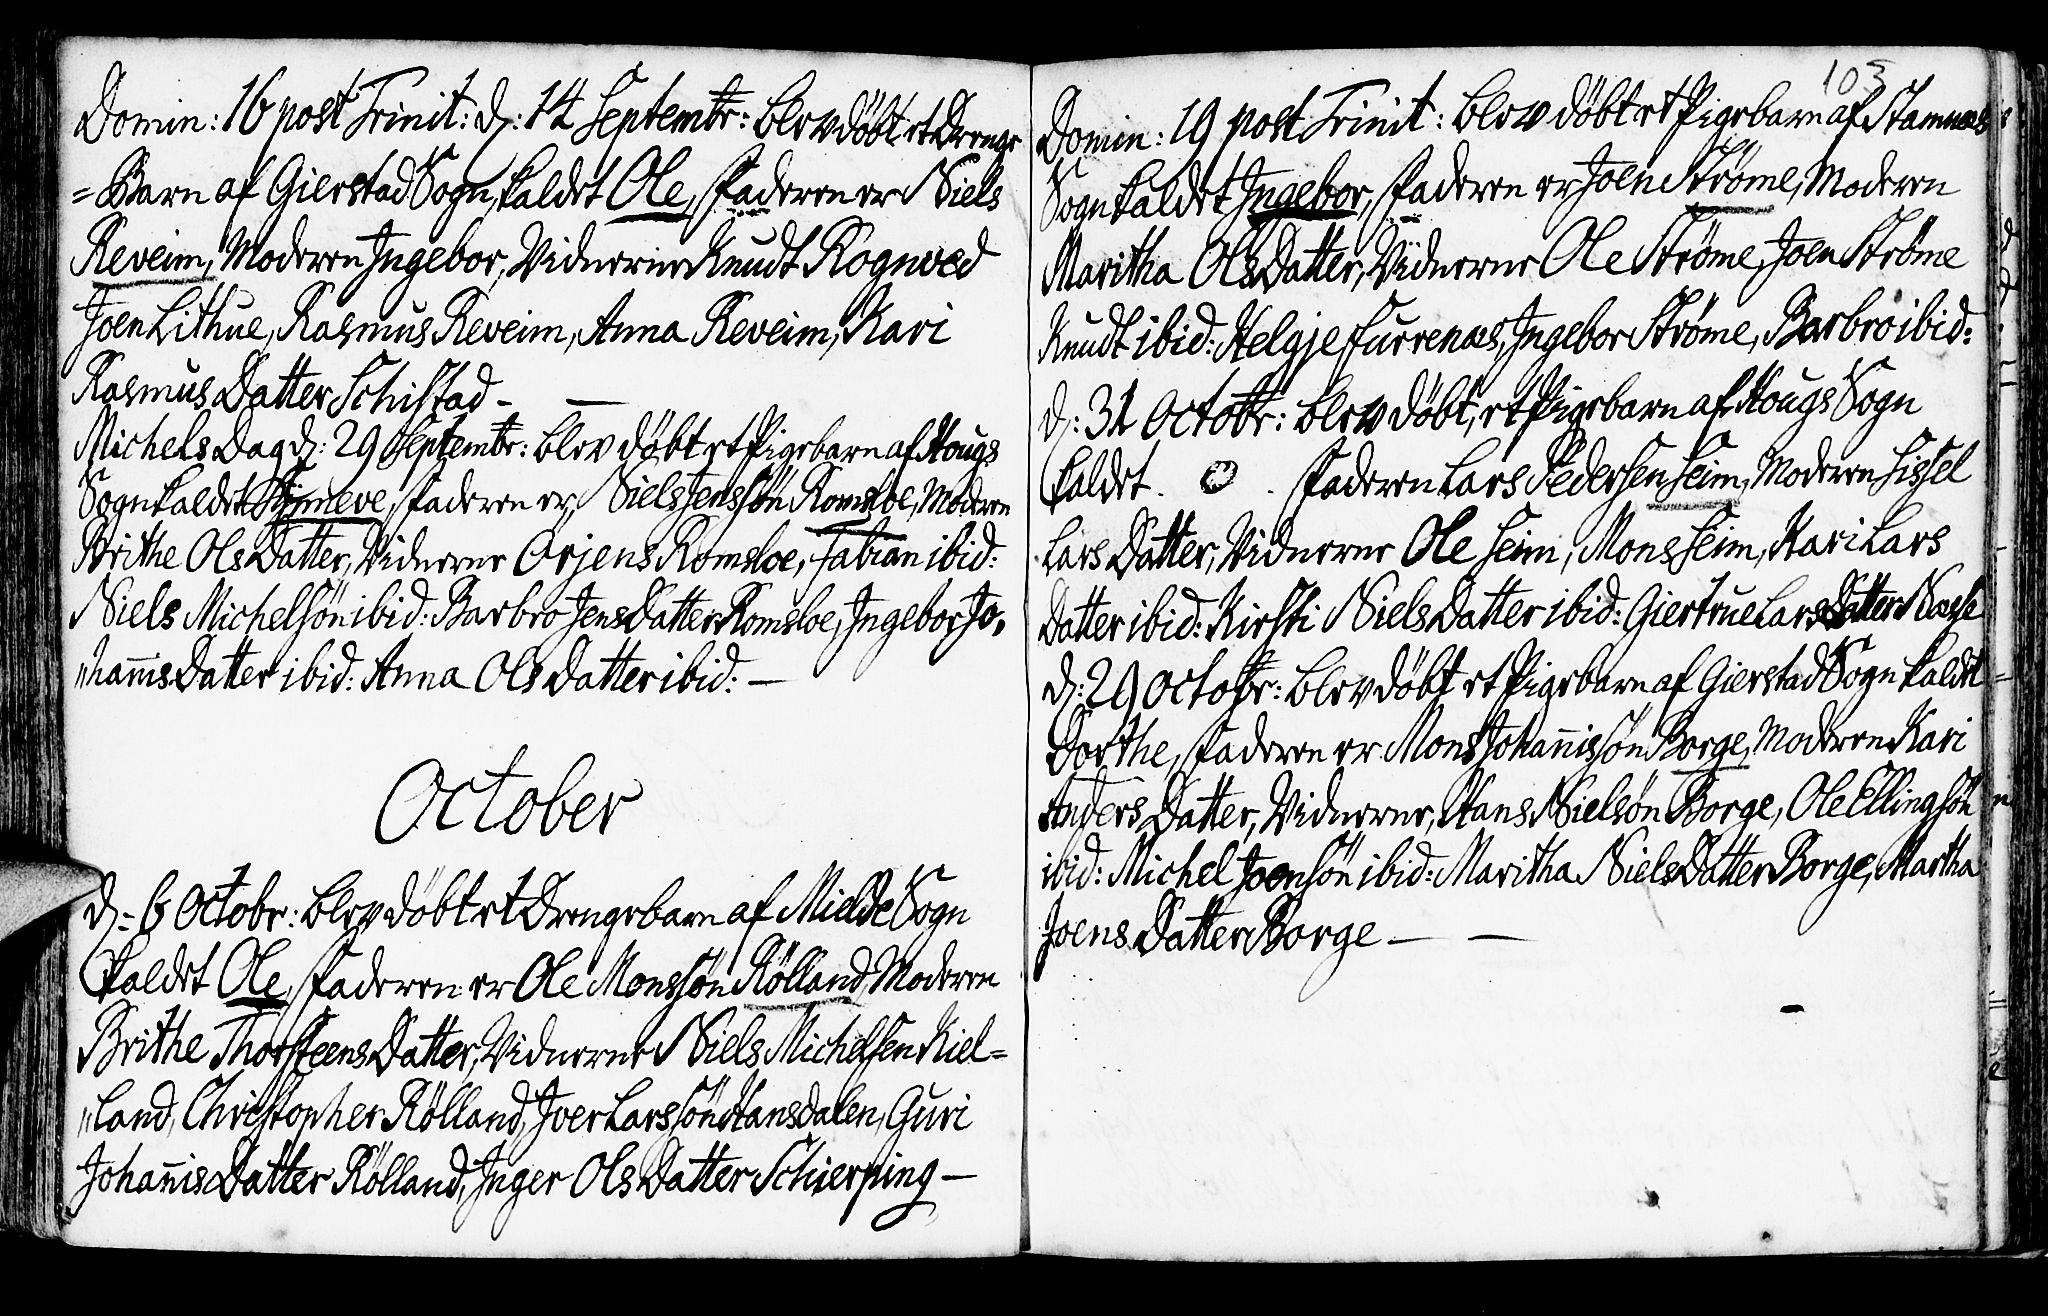 Domin: 16 post Trinit: d: 14 Septembr: blev döbt et Drenge
=Barn af Gierstad Sogn, kaldet Ole, Faderen er Niels
Reveim, Moderen Ingebor, Vidnerne Knudt Rognved
Joen Lithue, Rasmus Reveim, Anna Reveim, Kari
Rasmus Datter Schistad - —
Michels Dag d: 29 Septembr: blev döbt et Pigebarn af Hougs
Sogn kaldet Synneve, Faderen er, Niels Jenssön Romsloe, Moderen
Brithe Ols Datter, Vidnerne Orjens Romsloe, Fabian ibid:
Niels Michelsön ibid: Barbro Jens Datter Romsloe, Ingebor Jo,
"hannis Datter ibid: Anna Ols Datter ibid: —
October
d: 6 Octobr: blev döbt et Drengebarn af Mielde Sogn
kaldet Ole, Faderen er Ole Monssön Rölland, Moderen
Brithe Thorsteens Datter, Vidnerne Niels Michelsen Kiel=
"land, Christopher Rölland, Joer Larssön Hansdalen, Guri
Johannis Datter Rölland, Inger Ols Datter Schierping —
103
Domin: 19 post Trinit: blev döbt et Pigebarn af Stamnæs
Sogn kaldet Ingebor, Faderen er Joen Ströme, Moderen
Maritha Ols Datter, Vidnerne Ole Ströme, Joen Ströme
Knudt ibid: Helgje Furrenæs, Ingebor Ströme, Barbro ibid:
d: 31 Octobr: blev döbt, et Pigebarn af Hougs Sogn
kaldet . . Faderen Lars Pedersen Seim, Moderen Sissel
Lars Datter, Vidnerne Ole Seim, Mons Seim, Kari Lars
Datter ibid: Kirsti Niels Datter ibid: Giertrue Lars Datter Næsse
d: 29 Octobr: blev döbt et Pigebarn af Gierstad Sogn kaldet
Dorthe, Faderen er Mons Johannissön Borge, Moderen Kari
Anders Datter, Vidnerne, Hans Nielsön Borge, Ole Ellingsön
ibid: Michel Joensön ibid: Maritha Niels Datter Borge, Martha
Joens Datter Borge — —